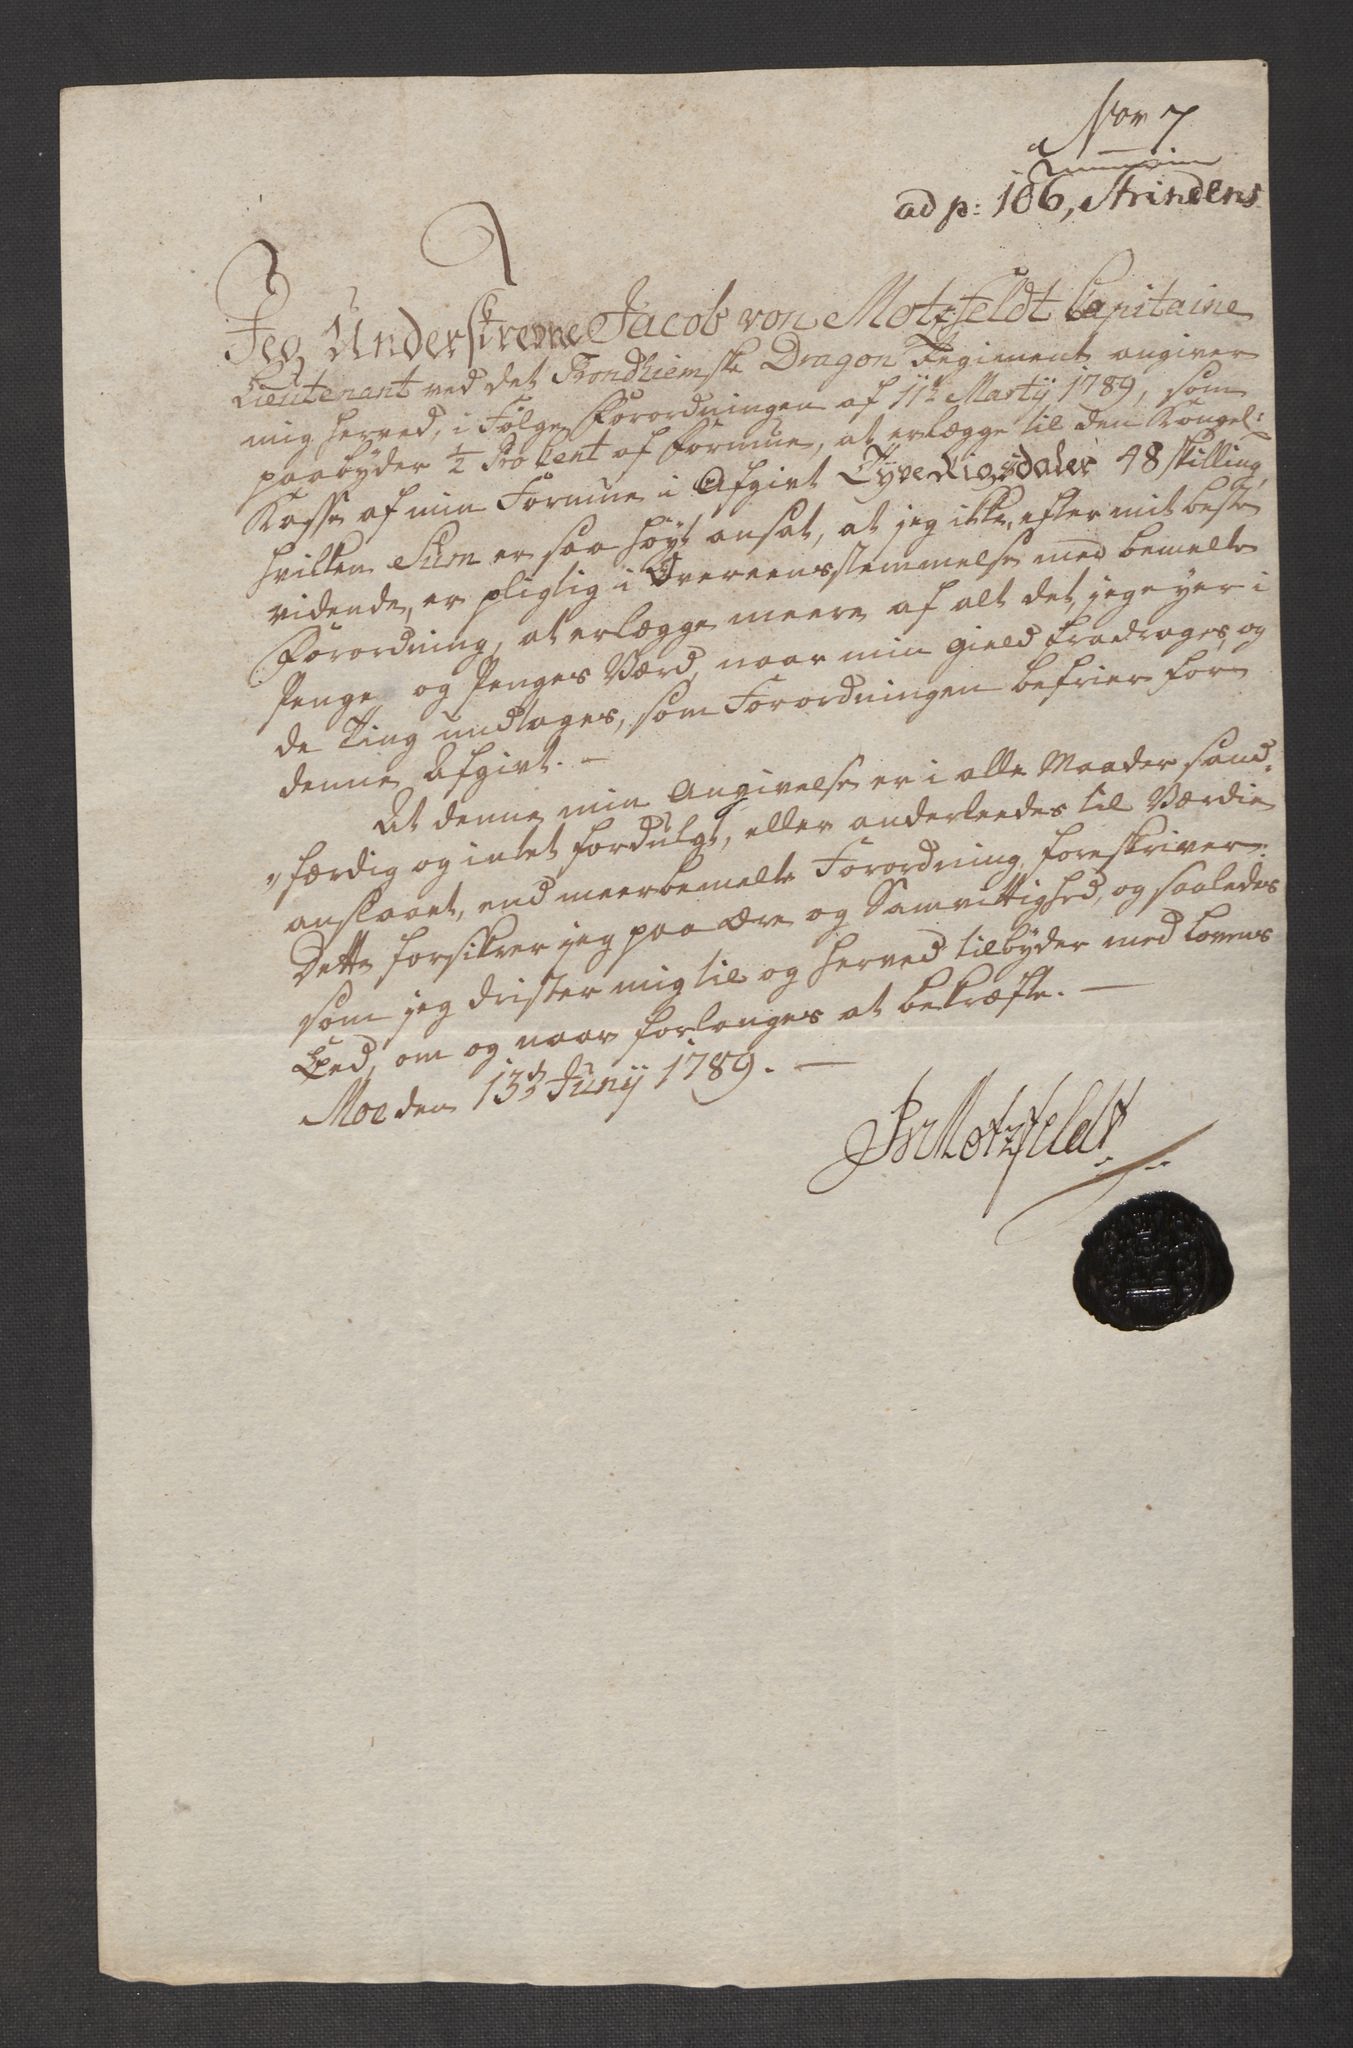 Nor 7
ad p: 106, Strindens
Jeg Underskrevne Jacob von Motzfeldt Capitaine
Lieutenant ved det Trondhiemske Dragon Regiment angiver
mig herved, i Følge Forordningen af 11te Martij 1789, som
paabyder 1/2 Pro Cent af Formue, at erlægge til den Kongel:
Kasse af min Formue i Afgivt Tyve Rigsdaler 48 skilling,
hvilken Sum er saa høyt ansat, at jeg ikke, efter mit beste
vidende, er pligtig i Overeensstemmelse med bemelte
Forordning, at erlægge meere af alt det, jeg eyer i
Penge og Penges Værd, naar min Gield fradrages, og
de Ting undtages, som Forordningen befrier for
denne Afgivt. –
At denne min Angivelse er i alle Maader sand-
„færdig og intet fordulgt, eller anderleedes til Værdie
anslaaet, end meerbemelte Forordning foreskriver:
Dette forsikrer jeg paa Ære og Samvittighed, og saaledes
som jeg drister mig til og herved tilbyder med Lovens
Eed, om og naar forlanges at bekræfte. —
Moe den 13de Junij 1789. —
JvMotzfeldt